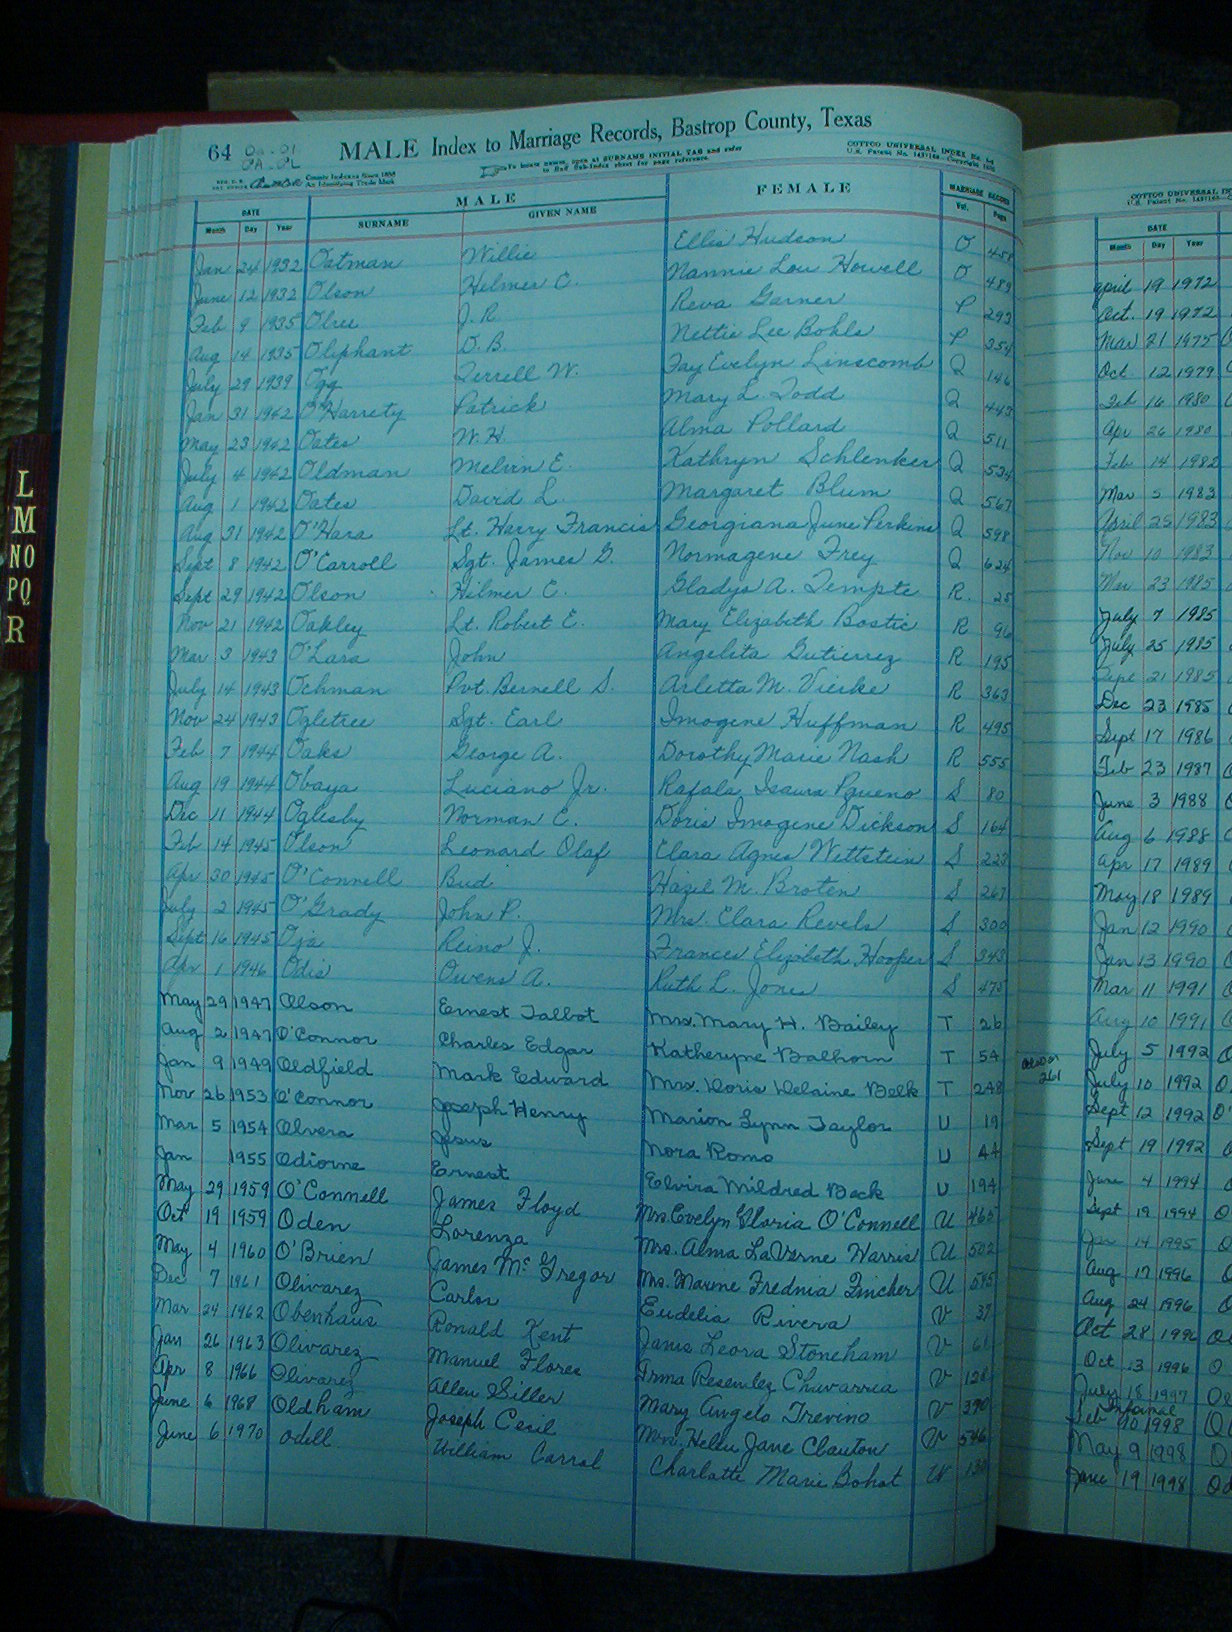 64 Oa-Ol
PA-PL
MALE Index to Marriage Records, Bastrop County, Texas
To locate names, open at SURNAME INITIAL TAB and refer
to first Sub-Index sheet for page reference.
COTTCO UNIVERSAL INDEX
County Indexes Since 1888
An Identifying Trade Mark
DATE MALE FEMALE MARRIAGE RECORD
Month Day Year SURNAME GIVEN NAME Vol. Page
Jan 24 1932 Oatman Willie Ellis Hudson O 458
June 12 1932 Olson Hilmer C. Nannie Lou Howell O 489
Feb 9 1935 Olree J. R. Reva Garner P 293
Aug 14 1935 Oliphant D. B. Nettie Lee Bohls P 354
July 29 1939 Ogg Terrell W. Fay Evelyn Linscomb Q 146
Jan 31 1942 O'Harrety Patrick Mary L. Todd Q 443
May 23 1942 Oates W. H. Alma Pollard Q 511
July 4 1942 Oldman Melvin E. Kathryn Schlenker Q 534
Aug 1 1942 Oates David L. Margaret Blum Q 567
Aug 31 1942 O'Hara Lt. Harry Francis Georgiana June Perkins Q 598
Sept 8 1942 O'Carroll Sgt. James G. Normagene Frey Q 624
Sept 29 1942 Olson Hilmer C. Gladys A. Tempte R 25
Nov 21 1942 Oakley Lt. Robert E. Mary Elizabeth Bostic R 96
Mar 3 1943 O'Lara John Angelita Gutierrez R 195
July 14 1943 Ochman Pvt. Bernell S. Arletta M. Vierke R 363
Nov 24 1943 Ogletree Sgt. Earl Imogene Huffman R 495
Feb 7 1944 Oaks George A. Dorothy Marie Nash R 555
Aug 19 1944 Obaya Luciano Jr. Rafala Isaura S 80
Dec 11 1944 Oglesby Norman C. Doris Imogene Dickson S 164
Feb 14 1945 Olson Leonard Olaf Clara Agnes Wettstein S 223
Apr 30 1945 O'Connell Bud Hazel M. Broten S 267
July 2 1945 O'Grady John P. Mrs. Clara Revels S 300
Sept 16 1945 Oja Reino J. Frances Elizabeth Hooper S 343
Apr 1 1946 Odis Owens A. Ruth L. Jones S 475
May 29 1947 Olson Ernest Talbot Mrs. Mary H. Bailey T 26
Aug 2 1947 O'Connor Charles Edgar Katheryne Balhorn T 54
Jan 9 1949 Oldfield Mark Edward Mrs. Doris Delaine Belk T 248
Nov 26 1953 O'Connor Joseph Henry Marion Lynn Taylor U 19
Mar 5 1954 Olvera Jesus Nora Romo U 44
Jan 1955 Odiorne Ernest Elvira Mildred Back U 194
May 29 1959 O'Connell James Floyd Mrs Evelyn Gloria O'Connell U 465
Oct 19 1959 Oden Lorenza Mrs. Alma LaVerne Harris U 502
May 4 1960 O'Brien James McGregor Mrs. Maxine Frednia Fincher U 545
Dec 7 1961 Olivarez Carlos Eudelia Rivera V 37
Mar 24 1962 Obenhaus Ronald Kent Janis Leora Stoneham V 61
Jan 26 1963 Olivarez Manuel Flores Irma Resendez Chavarria V 128
Apr 8 1966 Olivarez Allen Siller Mary Angela Trevino V 390
June 6 1968 Oldham Joseph Cecil Mrs. Helen Jane Clauton V 546
June 6 1970 Odell William Carrol Charlotte Marie Bohot W 130
L
M
NO
PQ
R
COTTCO UNIVERSAL
DATE
Month Day Year
April 19 1972
Oct. 19 1972
Mar 21 1975
Oct 12 1979
Feb 16 1980
Apr 26 1980
Feb 14 1982
Mar 5 1983
April 25 1983
Nov 10 1983
Mar 23 1985
July 7 1985
July 25 1985
Sept 21 1985
Dec 23 1985
Sept 17 1986
Feb 23 1987
June 3 1988
Aug 6 1988
Apr 17 1989
May 18 1989
Jan 12 1990
Jan 13 1990
Mar 11 1991
Aug 10 1991
July 5 1992
261 July 10 1992
Sept 12 1992
Sept 19 1992
June 4 1994
Sept 19 1994
Jan 14 1995
Aug 17 1996
Aug 24 1996
Oct 28 1996
Oct 13 1996
July 18 1997
Informal
Feb 10 1998
May 9 1998
June 19 1998